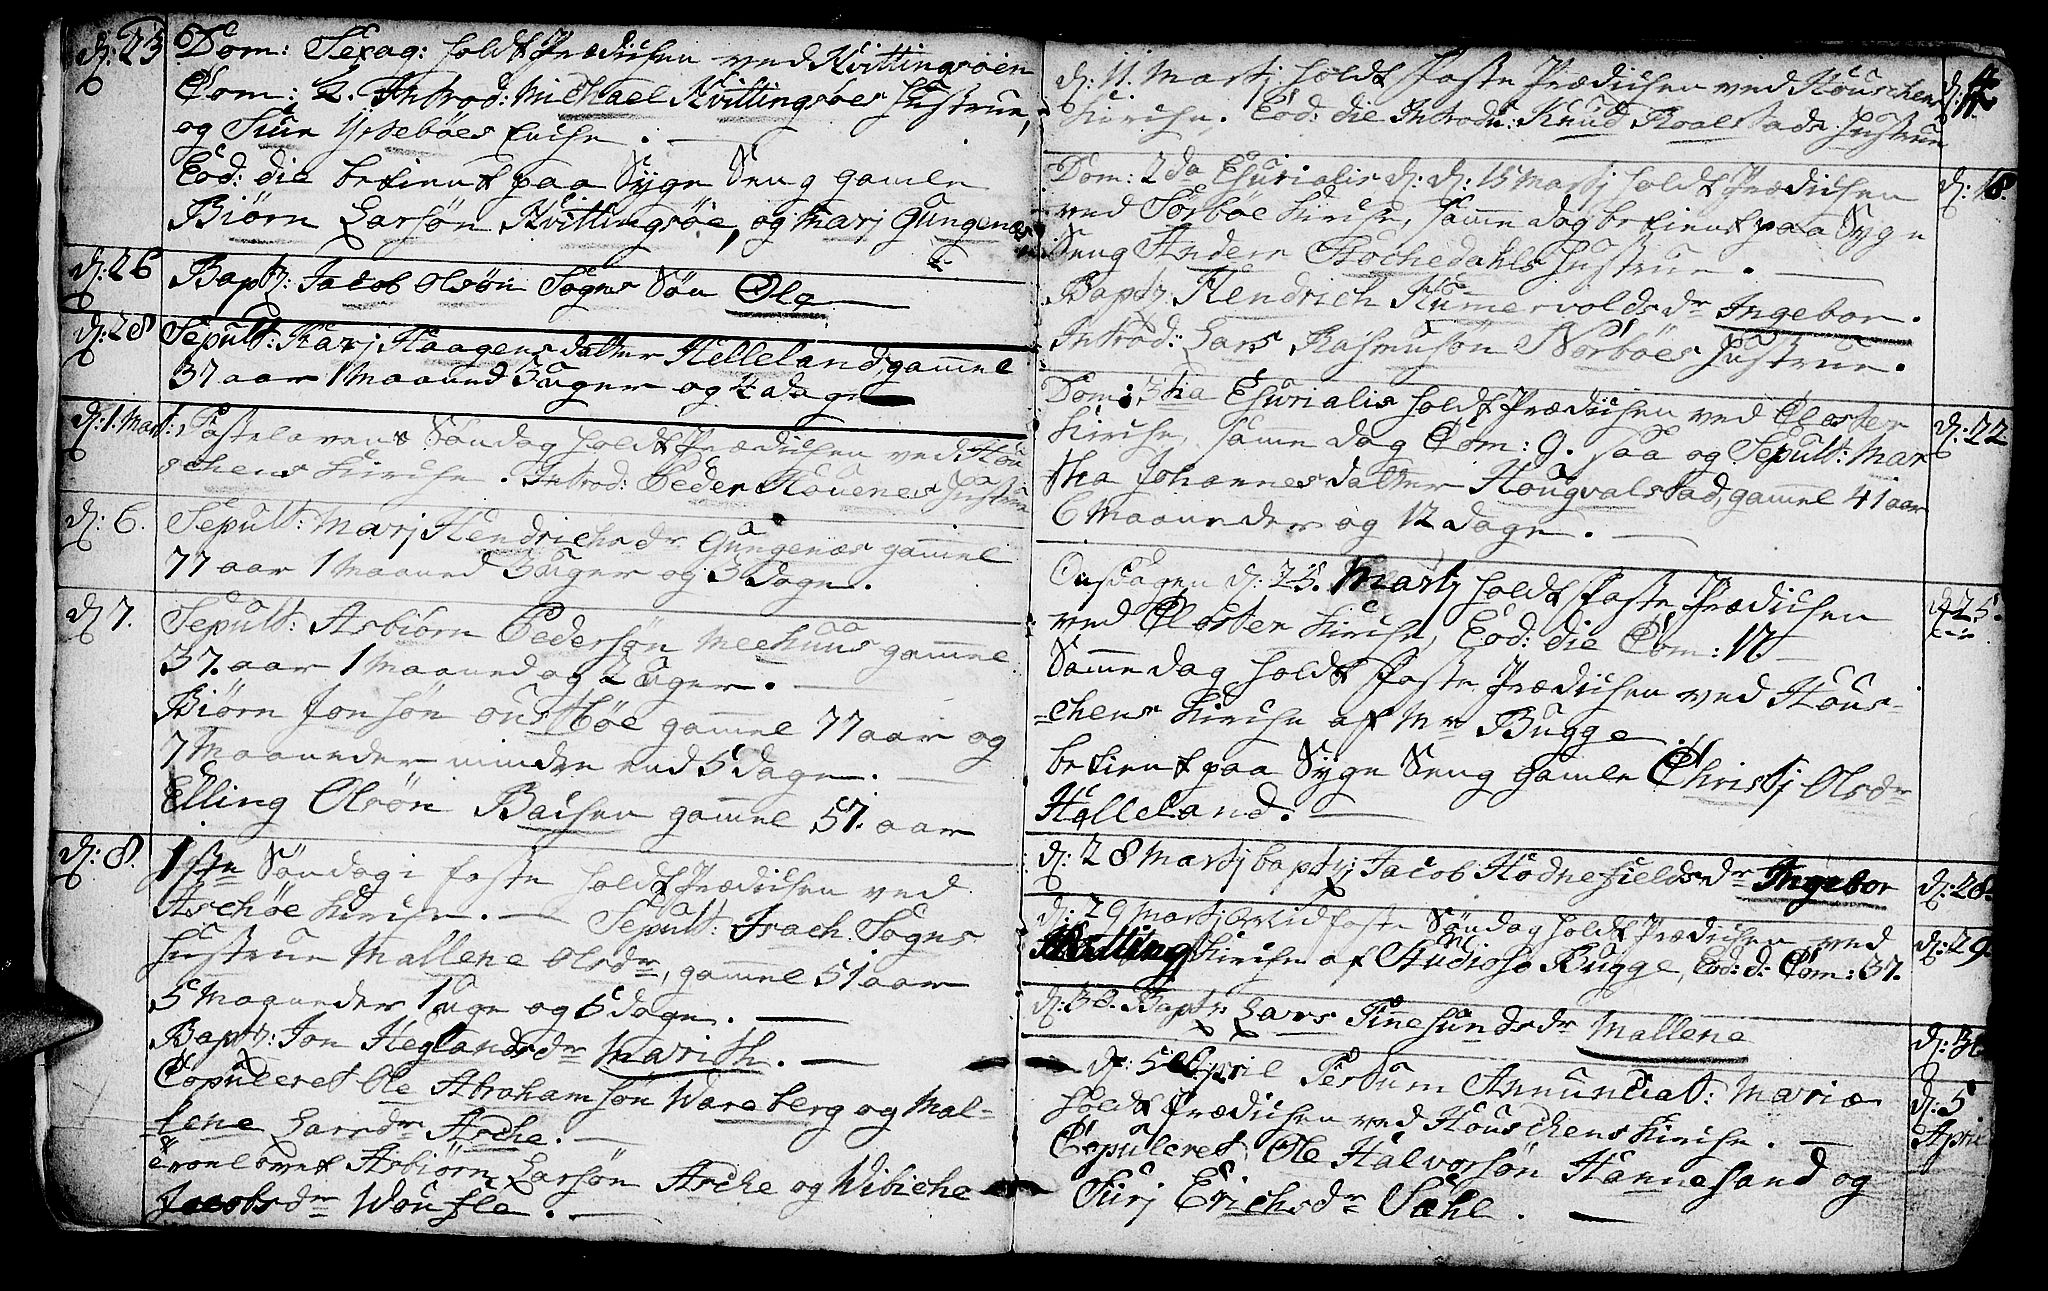 d: 23 Dom: Sexag: holdt Prædichen ved Kvittingsöen
Com: 2. Introd: Michael Kvittingsöes Hustrue,
og Siur Ydsteböes Enche.
Eod: die betient paa Syge Seng gamle
Biörn Larsön Kvittingsöe, og Marj Gungenæs
d: 26 Bapt: Jacob Olsön Sognes Sön Ole
d: 28 Sepult: Karj Haagensdatter Hellelands gammel
37 aar 1 Maaned 3 uger og 4 dage
d: 1. Mart: Fastelavens Söndag holdt Prædichen ved Hou
schens Kirche. Introd: Peder Houenes Hustrue
d: 6. Sepult: Marj Hendrichsdr Gungenæs gammel
77 aar 1 Maaned 3 uger og 3 dage.
d: 7. Sepult: Asbiörn Pedersön Meehuus gammel
37. aar 1 Maaned og 2 uger.
Biörn Jonsön Oustböe gammel 77 aar og
7 Maaneder minder end 5 dage.
Elling Olsön Bachen gammel 57. aar
d: 8. 1ste Söndag i faste holdt Prædichen ved
Aschöe Kirche. Sepult: Isach Sognes
Hustrue Mallene Olsdr, gammel 51 aar
5 Maaneder 1 uge og 6 dage.
Bapt: Jon Heglandsdr Marith.
Copuleret Ole Abrahamsön Wareberg og Mal-
lene Larsdr Asche.
Trolovet Asbiörn Larsön Asche og Wibiche
Jacobsdr Woufle.
d: 11. Martj holdt Faste Prædichen ved Houschens
Kirche. Eod: die Introd: Knud Roalstads Hustrue
Dom: 2da Esurialis d: 15 Martj holdt Prædichen
ved Sörböe Kirche, samme dag betient paa Syge
Seng Anders Hustrue.
Bapt: Hendrich Kummervolds dr Ingebor.
Introd: Lars Rasmusön Norböes Hustrue.
Dom: 3tia Esurialis holdt Prædichen ved Closter d: 22
Kirche, samme dag Com: 9. saa og Sepult: Mar
tha Johannesdatter Hougvalstad, gammel 41 aar
6 Maaneder og 12 dage.
Onsdagen d: 25. Martj holdt Faste Prædichen d: 25.
ved Closter Kirche, Eod: die Com: 17.
Samme dag holdt Faste Prædichen ved Hous-
chens Kirche af Mr Bugge.
betient paa Syge Seng gamle Christj Olsdr
Helleland.
d: 28 Martj bapt: Jacob Hodnefieldsdr Ingebor d: 28.
d: 29 Martj Midfaste Söndag holdt Prædichen ved
Kvitting Kirche af Studioso Bugge, Eod: d: Com: 37. d: 29.
d: 30. Bapt: Lars Finnesundsdr Mallene d: 30
d: 5 April Festum Annunciat: Mariæ d: 5
holdt Prædichen ved Houschens Kirche. April
Copuleret Ole Halvorsön Hannesand og
Turj Erichsdr Sahl.